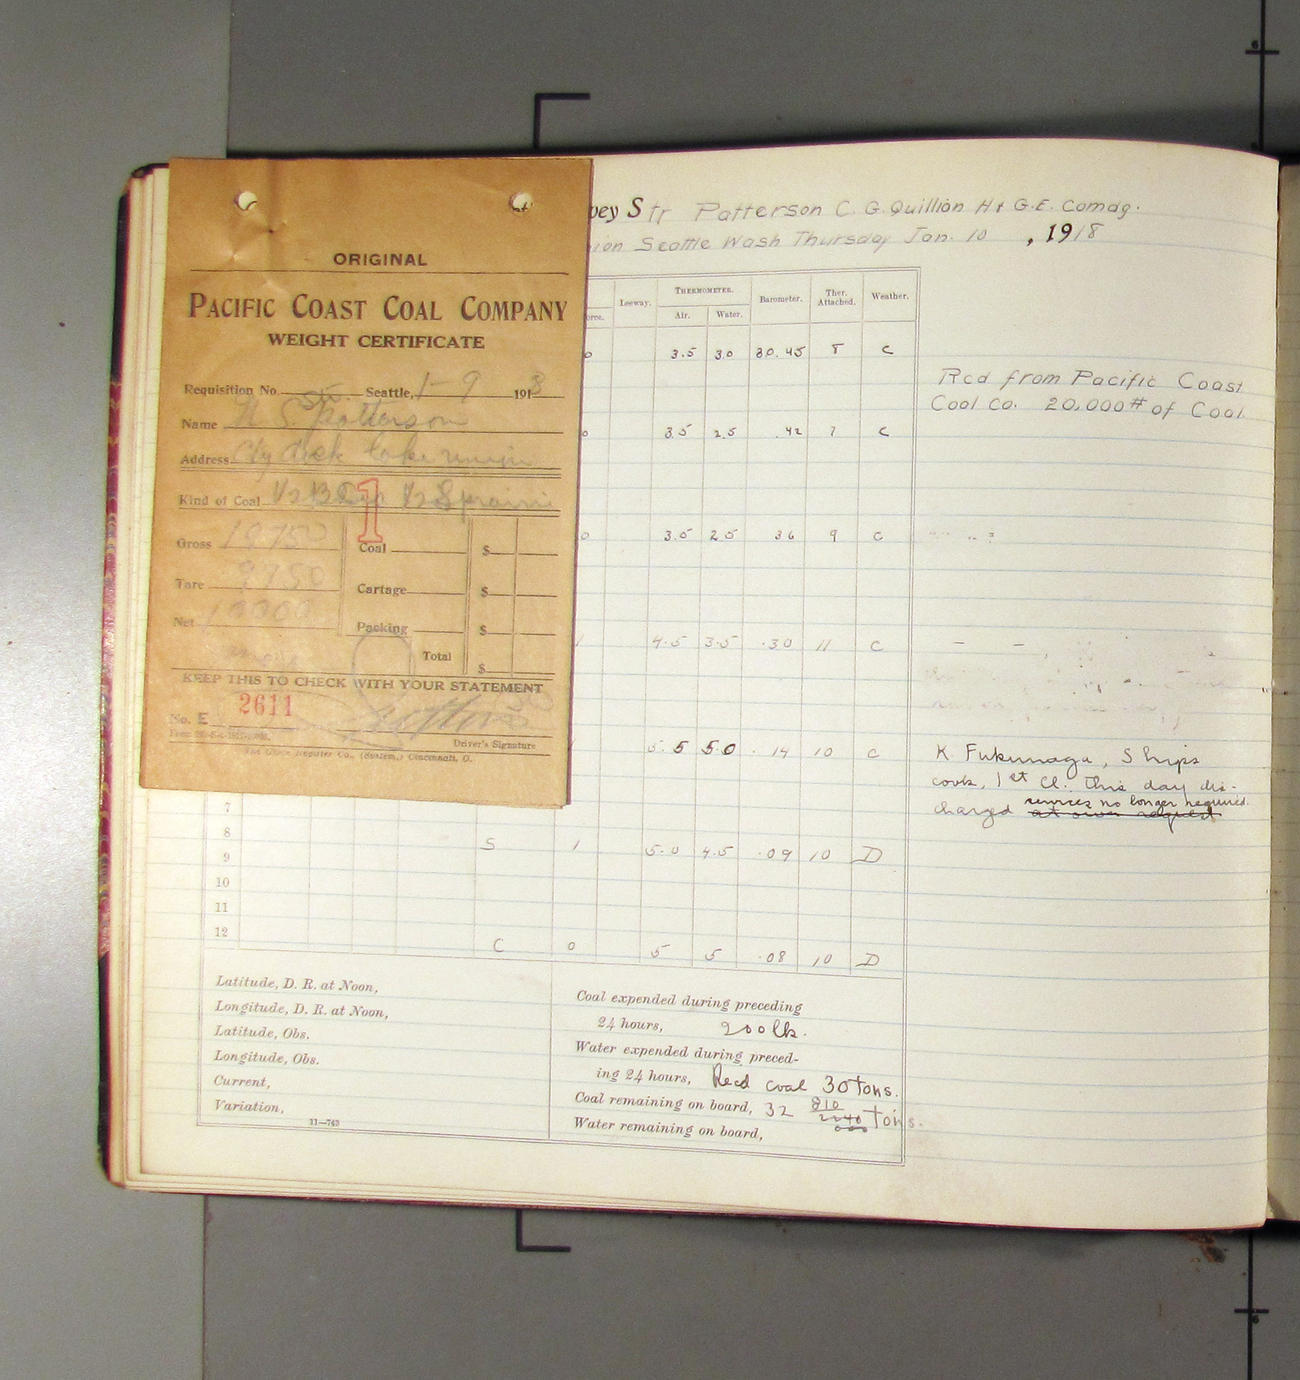 ORIGINAL
PACIFIC COAST COAL COMPANY
WEIGHT CERTIFICATE
Requisition No. Seattle, 1-9 1918
Name Patterson
Address City dock lake
Kind of Coal
Gross 19750 Coal $
Tare 9750 Cartage $
Net 10000 Packing $
Total $
KEEP THIS TO CHECK WITH YOUR STATEMENT
No. E 2611
Driver's Signature
(System,) Cincinnati, O.
vey Str Patterson C. G. Quillian H & G.E. Comdg.
nion Seattle Wash Thursday Jan. 10 , 1918
orce. Leeway. THERMOMETER. Air. Water. Barometer. Ther. Attached. Weather.
0 3.5 30 30.45 8 C
Rcd from Pacific Coast
Coal Co. 20,000# of Coal
0 35 25 .42 7 C
0 3.5 25 36 9 C
1 4.5 3.5 .30 11 C
5.5 5.0 .14 10 C
K. Fukunaga, Ships
cook, 1st Cl. this day dis-
services no longer required.
charged at own request
7
8
9 S 1 5.0 4.5 .09 10 D
10
11
12
C 0 5 5 .08 10 D
Latitude, D. R. at Noon,
Longitude, D. R. at Noon,
Latitude, Obs.
Longitude, Obs.
Current,
Variation,
11—743
Coal expended during preceding
24 hours, 200 lb.
Water expended during preced-
ing 24 hours, Recd coal 30 tons.
Coal remaining on board, 32 810/2240 tons.
Water remaining on board,